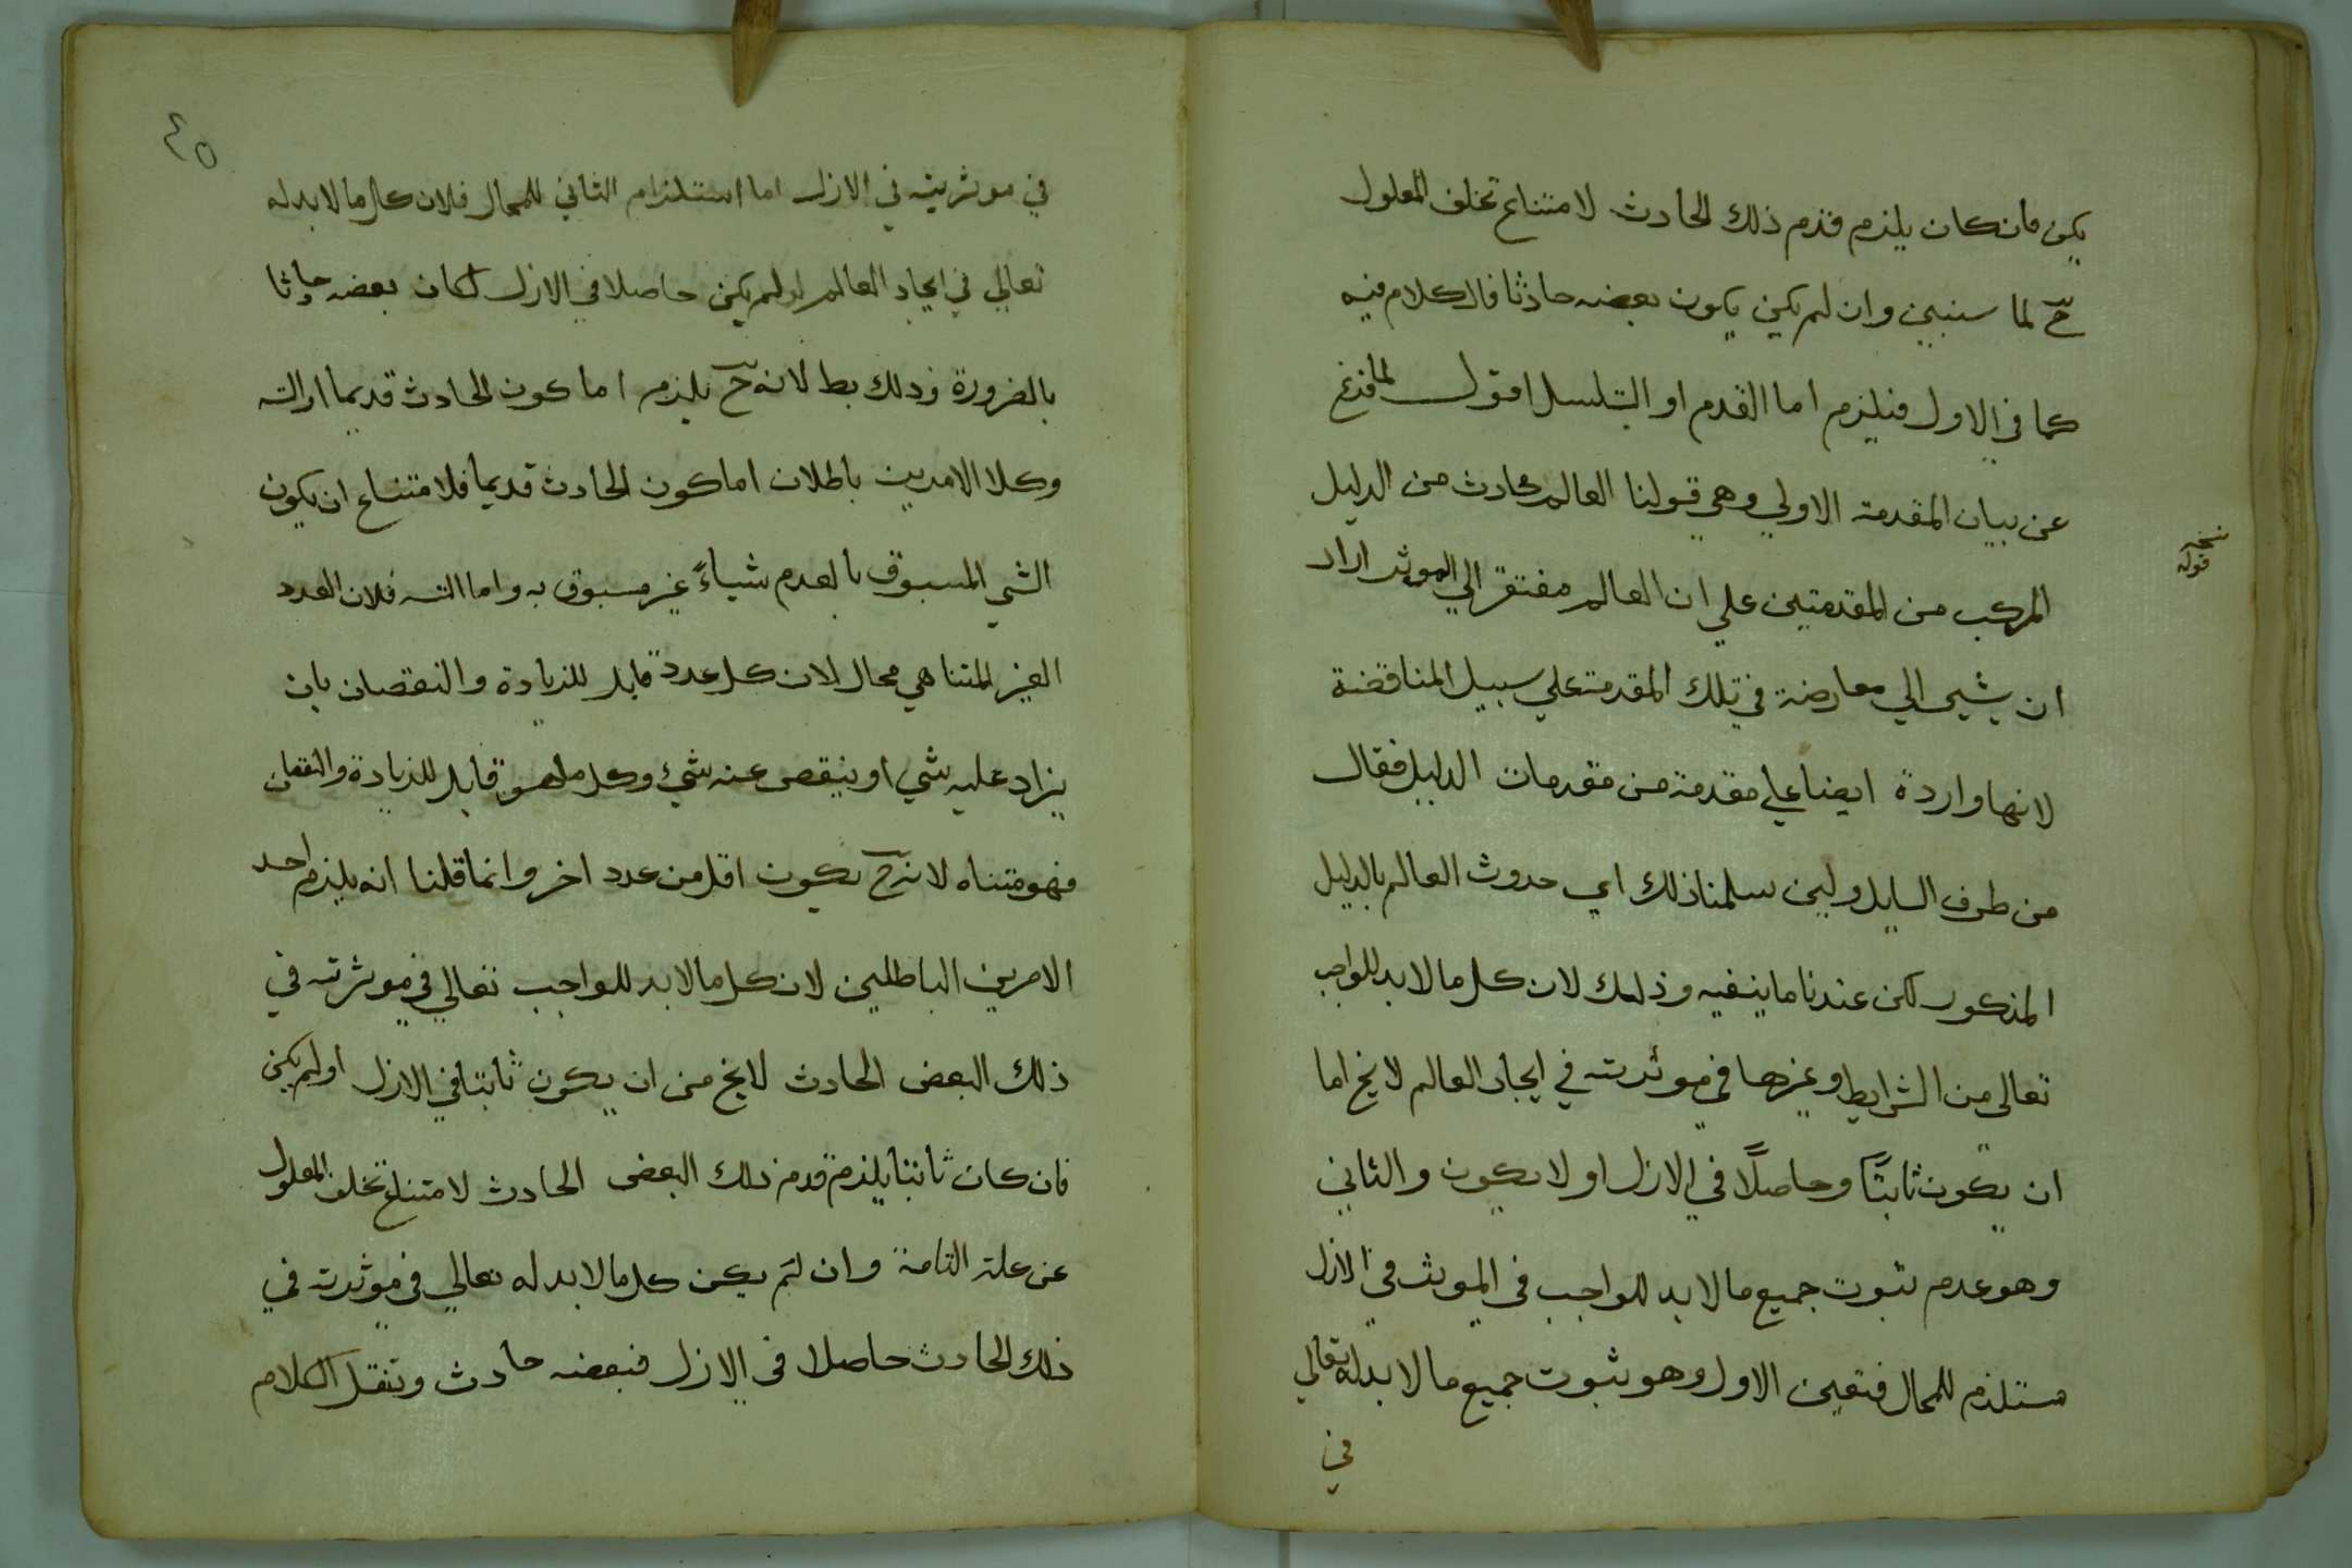 يكن فان كان يلزم قدم ذلك الحادث لامتناع تخلف المعلول
ح لما سنبين وان لم يكن يكون بعضه حادثا فالكلام فيه
كما في الاول فيلزم اما القدم او التسلسل اقول لما فرغ
عن بيان المقدمة الاولي وهي قولنا العالم حادث من الدليل
نسخه
قوله
المركب من المقدمتين علي ان العالم مفتقر الي الموثر اراد
ان يشير الي معارضة في تلك المقدمة علي سبيل المناقضة
لانها واردة ايضا علي مقدمة من مقدمات الدليل فقال
من طرف السايل ولين سلمنا ذلك اي حدوث العالم بالدليل
المذكور لكن عندنا ما ينفيه وذلك لان كل ما لا بد للواجب
تعالى من الشرايط وغيرها في موثرته في ايجاد العالم لا يخ اما
ان يكون ثابتًا وحاصلًا في الازل او لا يكون والثاني
وهو عدم ثبوت جميع ما لا بد للواجب في الموث في الازل
مستلزم للمحال فتعين الاول وهو ثبوت جميع ما لا بد له تعالي
في
٤٥
في موثريته في الازل اما استلزام الثاني للمحال فلان كل ما لا بد له
تعالي في ايجاد العالم لو لم يكن حاصلا في الازل لكان بعضه حادثا
بالضرورة وذلك بط لانه ح يلزم اما كون الحادث قديما او التسـ
وكلا الامرين باطلان اما كون الحادث قديما فلامتناع ان يكون
الشي المسبوق بالعدم شياءً غير مسبوق به واما التسـ فلان العدد
الغير المتناهي محال لان كل عدد قابل للزيادة والنقصان بان
يزاد عليه شي او ينقص عنه شيء وكل ما هو قابل للزيادة والنقصان
فهو متناه لانه ح يكون اقل من عدد اخر وانما قلنا انه يلزم احد
الامرين الباطلين لان كل ما لا بد للواجب تعالي في موثرته في
ذلك البعض الحادث لا يخ من ان يكون ثابتا في الازل او لم يكن
فان كان ثابتا يلزم قدم ذلك البعض الحادث لامتناع تخلف المعلول
عن علته التامة وان لم يكن كل ما لا بد له تعالي في موثرته في
ذلك الحادث حاصلا في الازل فبعضه حادث وننقل الكلام